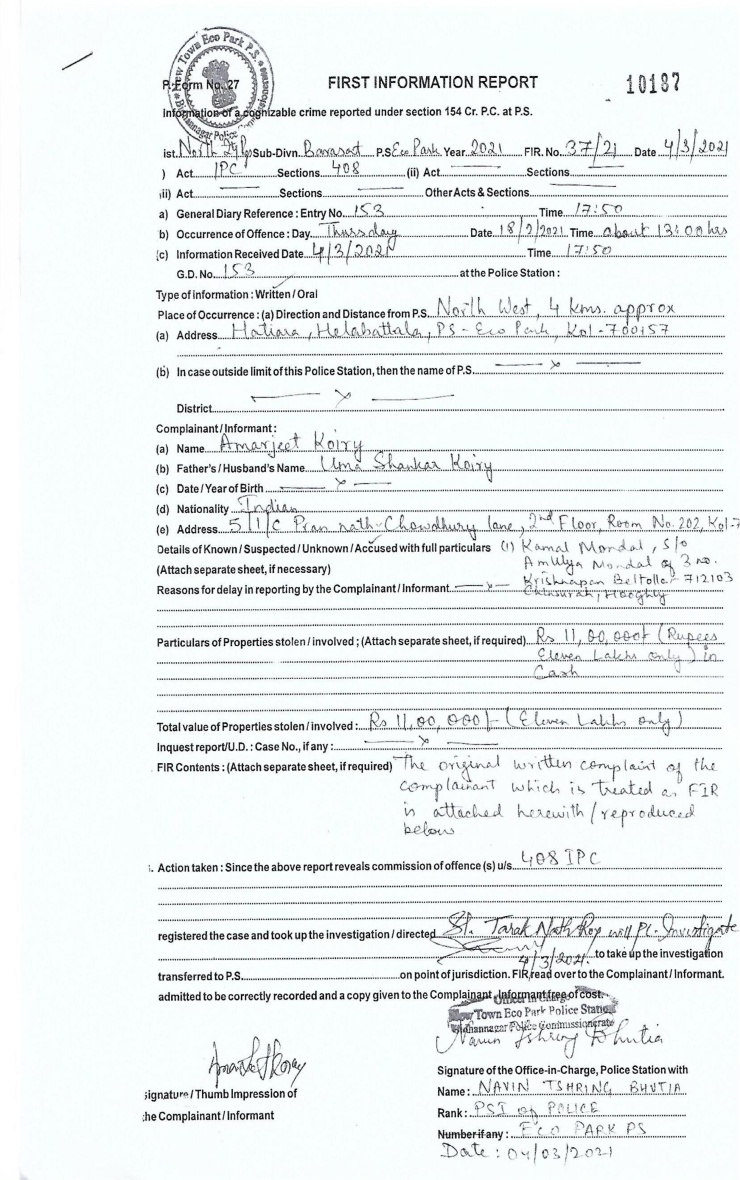 New Town Eco Park P.S.
Bidhannagar Police Commissionerate
P. Form No. 27
FIRST INFORMATION REPORT
10187
Information of a cognizable crime reported under section 154 Cr. P.C. at P.S.
ist. North Sub-Divn. Barasat P.S Eco Park Year 2021 FIR. No. 37/21 Date 4/3/2021
) Act IPC Sections 408 (ii) Act Sections
ii) Act Sections Other Acts & Sections
a) General Diary Reference : Entry No. 153 Time 17:50
b) Occurrence of Offence : Day Thursday Date 18/2/2021 Time about 13:00 hrs
(c) Information Received Date 4/3/2021 Time 17:50
G.D. No. 153 at the Police Station :
Type of information : Written / Oral
Place of Occurrence : (a) Direction and Distance from P.S. North West, 4 kms. approx
(a) Address Hatiara, Helabattala, PS - Eco Park, Kol-700157
(b) In case outside limit of this Police Station, then the name of P.S. x
District x
Complainant / Informant :
(a) Name Amarjeet Koiry
(b) Father's / Husband's Name Uma Shankar Koiry
(c) Date / Year of Birth x
(d) Nationality Indian
(e) Address 5/1/C Pran nath Chowdhury lane, 2nd Floor, Room No. 202, Kol-7
Details of Known / Suspected / Unknown / Accused with full particulars (1) Kamal Mondal, S/o
(Attach separate sheet, if necessary) Amulya Mondal of 3 no.
Krishnapan Beltolla - 712103
Reasons for delay in reporting by the Complainant / Informant x Chinsurah, Hooghly
Particulars of Properties stolen / involved ; (Attach separate sheet, if required) Rs 11,00,000/- (Rupees
Eleven Lakhs only) in
Cash
Total value of Properties stolen / involved : Rs 11,00,000/- (Eleven Lakhs only)
Inquest report/U.D. : Case No., if any : x
FIR Contents : (Attach separate sheet, if required) The original written complaint of the
complainant which is treated as FIR
is attached herewith / reproduced
below
. Action taken : Since the above report reveals commission of offence (s) u/s. 408 IPC
registered the case and took up the investigation / directed SI. Tarak Nath Roy will Pl. Investigate
4/3/2021 to take up the investigation
transferred to P.S. on point of jurisdiction. FIR, read over to the Complainant / Informant.
admitted to be correctly recorded and a copy given to the Complainant Informant free of cost.
Officer in Charge
New Town Eco Park Police Station
Bidhannagar Police Commissionerate
Navin Tshring Bhutia
Signature of the Office-in-Charge, Police Station with
Signature / Thumb Impression of
the Complainant / Informant
Name : NAVIN TSHRING BHUTIA
Rank : PSI of POLICE
Number if any : ECO PARK PS
Date : 04/03/2021